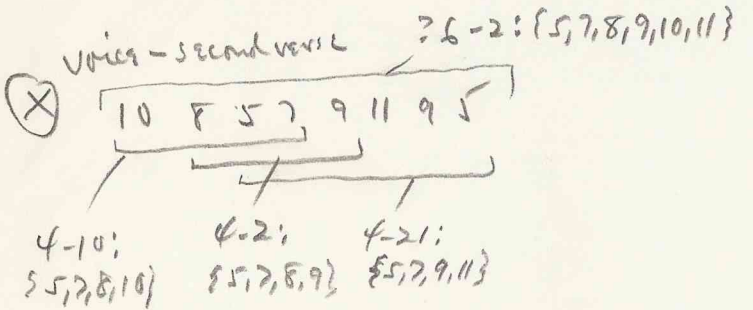 voice - second verse ?6-2: {5,7,8,9,10,11}
X 10 8 5 7 9 11 9 5
4-10: 4-2: 4-21:
{5,7,8,10} {5,7,8,9} {5,7,9,11}